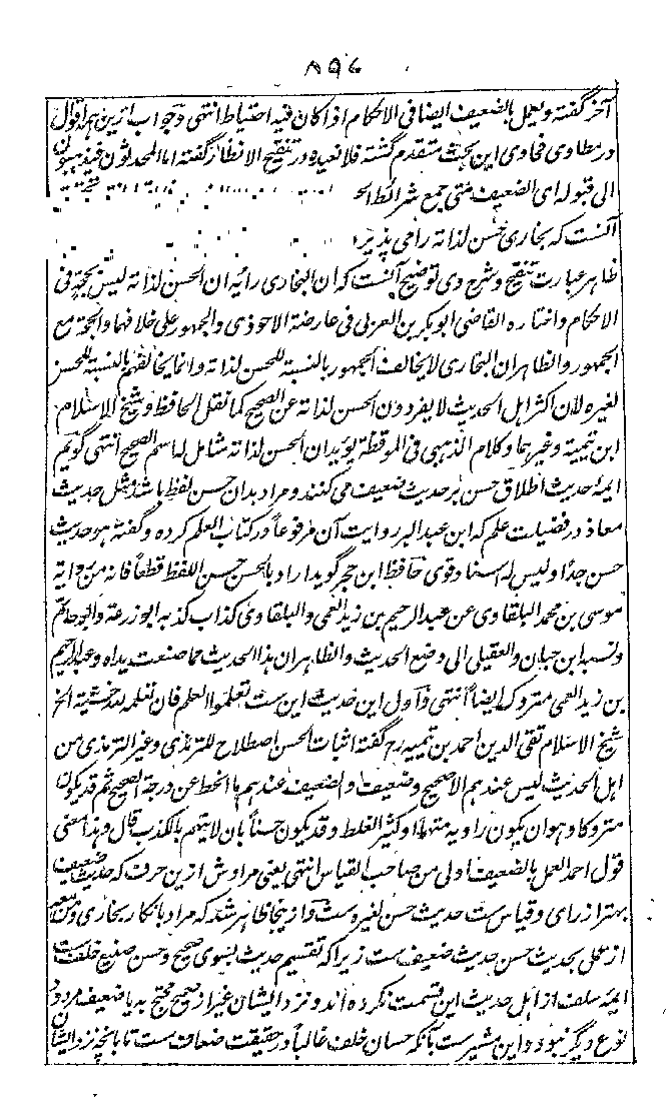 ٨٩٤
آخر گفته ویعمل بالضعیف ایضا فی الاحکام اذا کان فیه احتیاط انتهی وجواب ازین همه اقوال
در مطاوی فحاوی این بحث متقدم گشته فلا نعیده ودر تنقیح الانظار گفته اما المحدثون
الی قبوله ای الضعیف متی جمع شرائط
آنست که بخاری حسن لذاته را می پذیرد
ظاهر عبارت تنقیح وشرح وی توضیح آنست که ان البخاری رائیه ان الحسن لذاته لیس بحجة فی
الاحکام واختاره القاضی ابو بکر بن العربی فی عارضة الاحوذی والجمهور علی خلافهما والحجة مع
الجمهور والظاهر ان البخاری لا یخالف الجمهور بالنسبة للحسن لذاته وانما یخالفهم بالنسبة للحسن
لغیره لان اکثر اهل الحدیث لا یفردون الحسن لذاته عن الصحیح کما نقل الحافظ وشیخ الاسلام
ابن تیمیة وغیرهما وکلام الذهبی فی الموقظة یؤید ان الحسن لذاته شامل له اسم الصحیح انتهی گویم
ایمهٔ حدیث اطلاق حسن بر حدیث ضعیف می کنند ومراد بدان حسن لفظ باشد ومثل حدیث
معاذ در فضیلت علم که ابن عبد البر روایت آن مرفوعاً در کتاب العلم کرده وگفته هو حدیث
حسن جدًا ولیس له اسناد قوی حافظ ابن حجر گوید اراد بالحسن حسن اللفظ قطعاً فانه من روایة
موسی بن محمد البلقاوی عن عبد الرحیم بن زید العمی والبلقاوی کذاب کذبه ابو زرعة وابو حاتم
ونسبه ابن حبان والعقیلی الی وضع الحدیث والظاهر ان هذا الحدیث مما صنعت یداه وعبد الرحیم
بن زید العمی متروک ایضاً انتهی واول این حدیث این ست تعلموا العلم فان تعلمه لله خشیة الخ
شیخ الاسلام تقی الدین احمد بن تیمیه رح گفته اثبات الحسن اصطلاح للترمذی وغیر الترمذی من
اهل الحدیث لیس عندهم الا صحیح وضعیف والضعیف عندهم ما انحط عن درجة الصحیح ثم قد یکون
متروکا وهو ان یکون راویه متهما او کثیر الغلط وقد یکون حسناً بان لا یتهم بالکذب قال وهذا معنی
قول احمد العمل بالضعیف اولی من صاحب القیاس انتهی یعنی مرادش ازین حرف که حدیث ضعیف
بهتر از رای وقیاس ست حدیث حسن لغیره ست وازینجا ظاهر شد که مراد بانکار بخاری
از عمل بحدیث حسن حدیث ضعیف ست زیرا که تقسیم حدیث بسوی صحیح وحسن صنیع خلف ست
ایمهٔ سلف از اهل حدیث این قسمت نکرده اند ونزد ایشان غیر از صحیح محتج به یا ضعیف مردود
نوع دیگر نبود واین مشیر ست بآنکه حسان خلف غالباً در حقیقت ضعاف ست تا بآنچه نزد ایشان